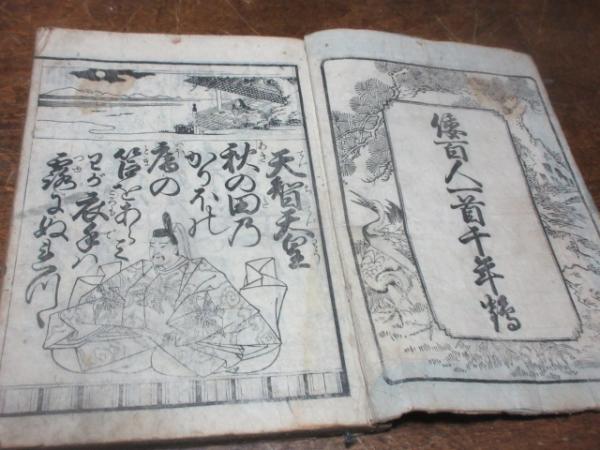 倭百人一首千年鶴
天智天皇
秋の田乃
かりほの
庵の
苫をあらミ
わが衣手ハ
露にぬれつゝ